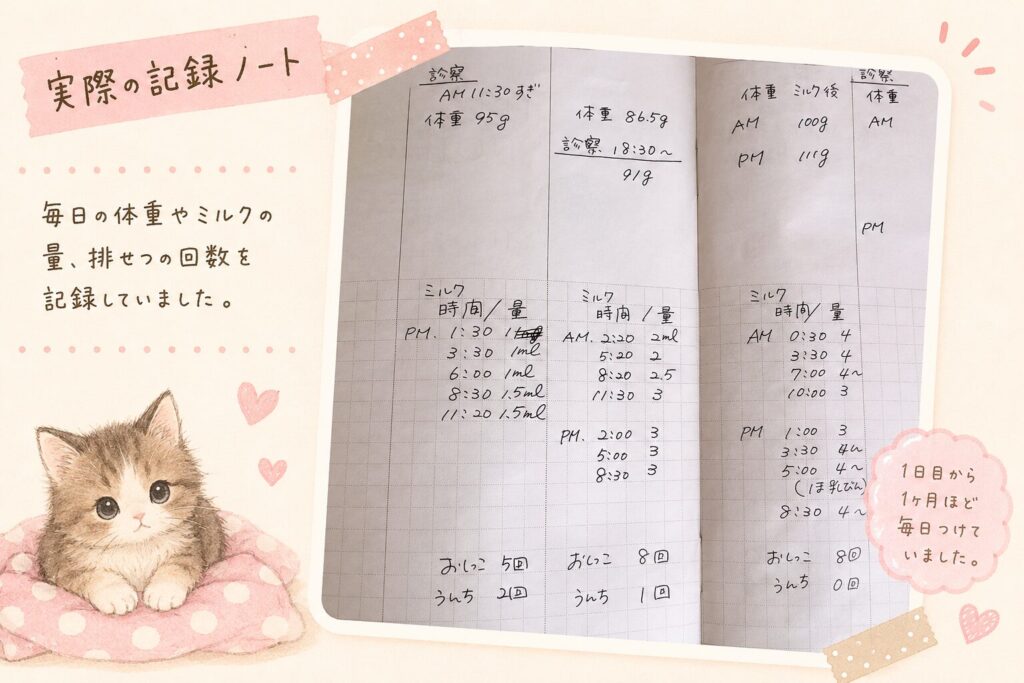 実際の記録ノート
毎日の体重やミルクの
量、排せつの回数を
記録していました。
診察
AM 11:30すぎ
体重 95g
ミルク
時間/量
PM. 1:30
3:30 1ml
6:00 1ml
8:30 1.5ml
11:20 1.5ml
おしっこ 5回
うんち 2回
体重 86.5g
診察 18:30~
91g
ミルク
時間/量
AM. 2:20 2ml
5:20 2
8:20 2.5
11:30 3
PM. 2:00 3
5:00 3
8:30 3
おしっこ 8回
うんち 1回
体重 ミルク後
AM 100g
PM 111g
ミルク
時間/量
AM 0:30 4
3:30 4
7:00 4~
10:00 3
PM 1:00 3
3:30 4~
5:00 4~
(ほ乳びん)
8:30 4~
おしっこ 8回
うんち 0回
診察
体重
AM
PM
1日目から
1ヶ月ほど
毎日つけて
いました。